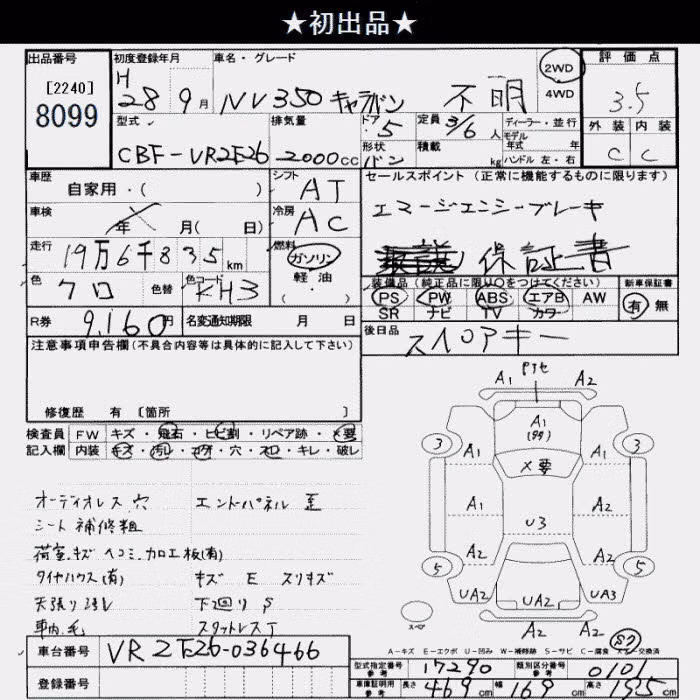 ★初出品★
出品番号 初度登録年月 車名・グレード 2WD 4WD 評価点
[2240]
8099
H 28 9月 NV350 キャラバン 不明 3.5
型式 排気量 ドア 5 定員 3/6人 ディーラー・並行 外装 内装
CBF-VR2E26 2000cc 形状 バン 積載 kg モデル年式 年 ハンドル 左・右 C C
車歴 自家用・( ) シフト AT セールスポイント (正常に機能するものに限ります)
車検 年 月( 日) 冷房 AC エマージェンシーブレーキ
走行 19万6千835km 燃料 ガソリン 軽油 ( ) 保証書
色 クロ 色替 色コード KH3 装備品(純正品に限り○をつけてください) 新車保証書
PS PW ABS エアB AW 有 無
SR ナビ TV カワ
R券 9,160円 名変通知期限 月 日 後日品 スペアキー
注意事項申告欄(不具合内容等は具体的に記入して下さい)
修復歴 有 [箇所 ]
検査員 FW キズ・飛石・ヒビ割・リペア跡・×要
記入欄 内装 キズ・汚レ・コゲ・穴・スレ・キレ・破レ
オーディオレス 穴 エンドパネル 歪
シート 補修粗
荷室.キズ ヘコミ.加工板(有)
タイヤハウス(有) キズ E スリキズ
天張り 汚レ 下廻り S
車内 毛 スタットレスT
A1 A2
A1
3 A1 A1 3
×要
A1 A2
U3
A2 A2
5 5
UA2 UA2 UA3
A2 A2
スペア
S7
A-キズ E-エクボ U-凹み W-補修跡 S-サビ C-腐食 X-交換済
車台番号 VR2E26-036466
登録番号
型式指定番号 参考 17290 類別区分番号 参考 0101
車庫証明用 参考 長さ 469cm 幅 169cm 高さ 195cm